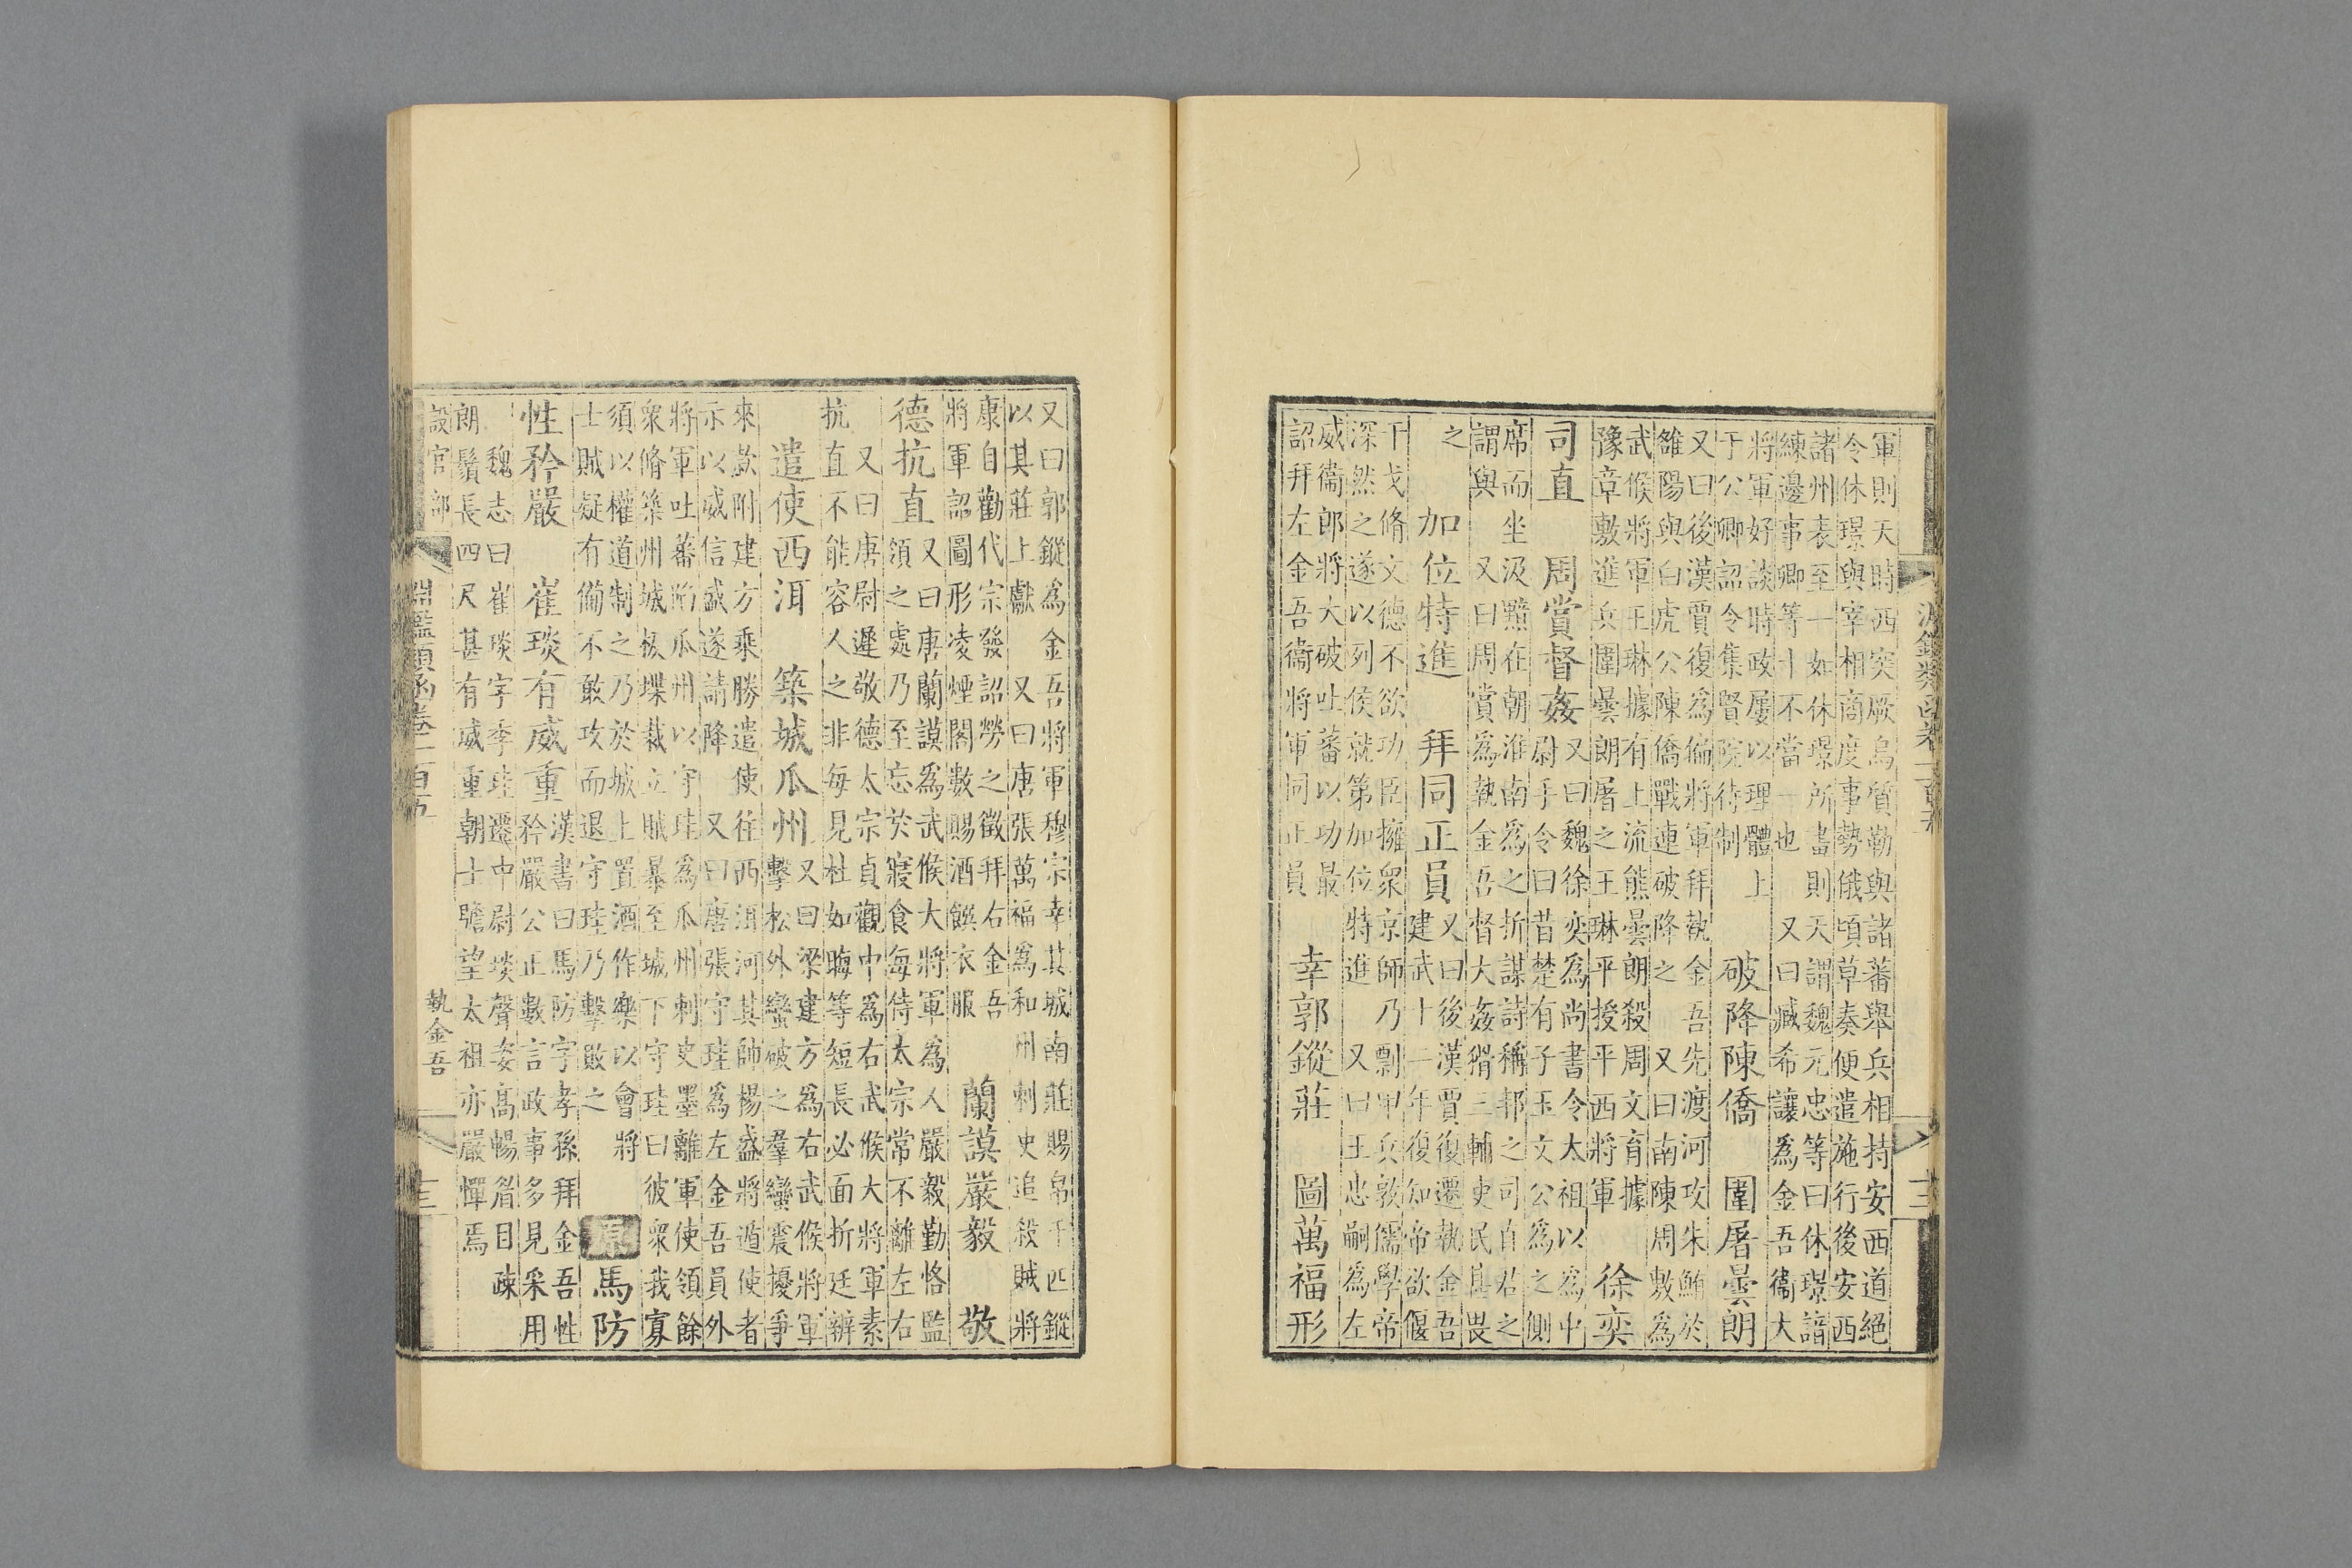 軍則天時西突厥烏質勒與諸蕃舉兵相持安西道絕
令休璟與宰相商度事勢俄頃草奏便遣施行後安西
諸州表至一如休璟所畫則天謂魏元忠等曰休璟諳
練邊事卿等十不當一也 又曰臧希讓為金吾衛大
將軍好談時政屢以理體上
于公卿詔令集賢院待制
破降陳僑 圍屠曇朗
又曰後漢賈復為偏將軍拜執金吾先渡河攻朱鮪於
雒陽與白虎公陳僑戰連破降之 又曰南陳周敷為
武候將軍王琳據有上流熊曇朗殺周文育據
豫章敷進兵圍曇朗屠之王琳平授平西將軍
徐奕
司直 周賞督姦
又曰魏徐奕為尚書令太祖以為中
尉手令曰昔楚有子玉文公為之側
席而坐汲黯在朝淮南為之折謀詩稱邦之司直君之
謂與 又曰周賞為執金吾督大姦猾三輔吏民具畏
之
加位特進 拜同正員
又曰後漢賈復遷執金吾
建武十一年復知帝欲偃
干戈脩文德不欲功臣擁衆京師乃剽甲兵敦儒學帝
深然之遂以列侯就第加位特進 又曰王忠嗣為左
威衞郎將大破吐蕃以功最
詔拜左金吾衞將軍同正員
幸郭鏦莊 圖萬福形
又曰郭鏦為金吾將軍穆宗幸其城南莊賜帛千匹鏦
以其莊上獻 又曰唐張萬福為和州刺史追殺賊將
康自勸代宗發詔勞之徵拜右金吾
將軍詔圖形凌煙閣數賜酒饌衣服
蘭謨嚴毅 敬
德抗直
又曰唐蘭謨為武候大將軍為人嚴毅勤恪監
領之處乃至忘於寢食每侍太宗常不離左右
又曰唐尉遲敬德太宗貞觀中為右武候大將軍素
抗直不能容人之非每見杜如晦等短長必面折廷辨
遣使西洱 築城瓜州
又曰梁建方為右武候將軍
擊松外蠻破之羣蠻震擾爭
來款附建方乘勝遣使往西洱河其帥楊盛將遁使者
示以威信盛遂請降 又曰唐張守珪為左金吾員外
將軍吐蕃陷瓜州以守珪為瓜州刺史墨離軍使領餘
衆脩築州城板堞裁立賊暴至城下守珪曰彼衆我寡
須以權道制之乃於城上置酒作樂以會將
士賊疑有備不敢攻而退守珪乃擊敗之
原 馬防
性矜嚴 崔琰有威重
漢書曰馬防字孝孫拜金吾性
矜嚴公正數言政事多見采用
魏志曰崔琰字季珪遷中尉琰聲姿高暢眉目疎
朗鬚長四尺甚有威重朝士瞻望太祖亦嚴憚焉
設官部
淵鑑類函卷一百五
執金吾
十三